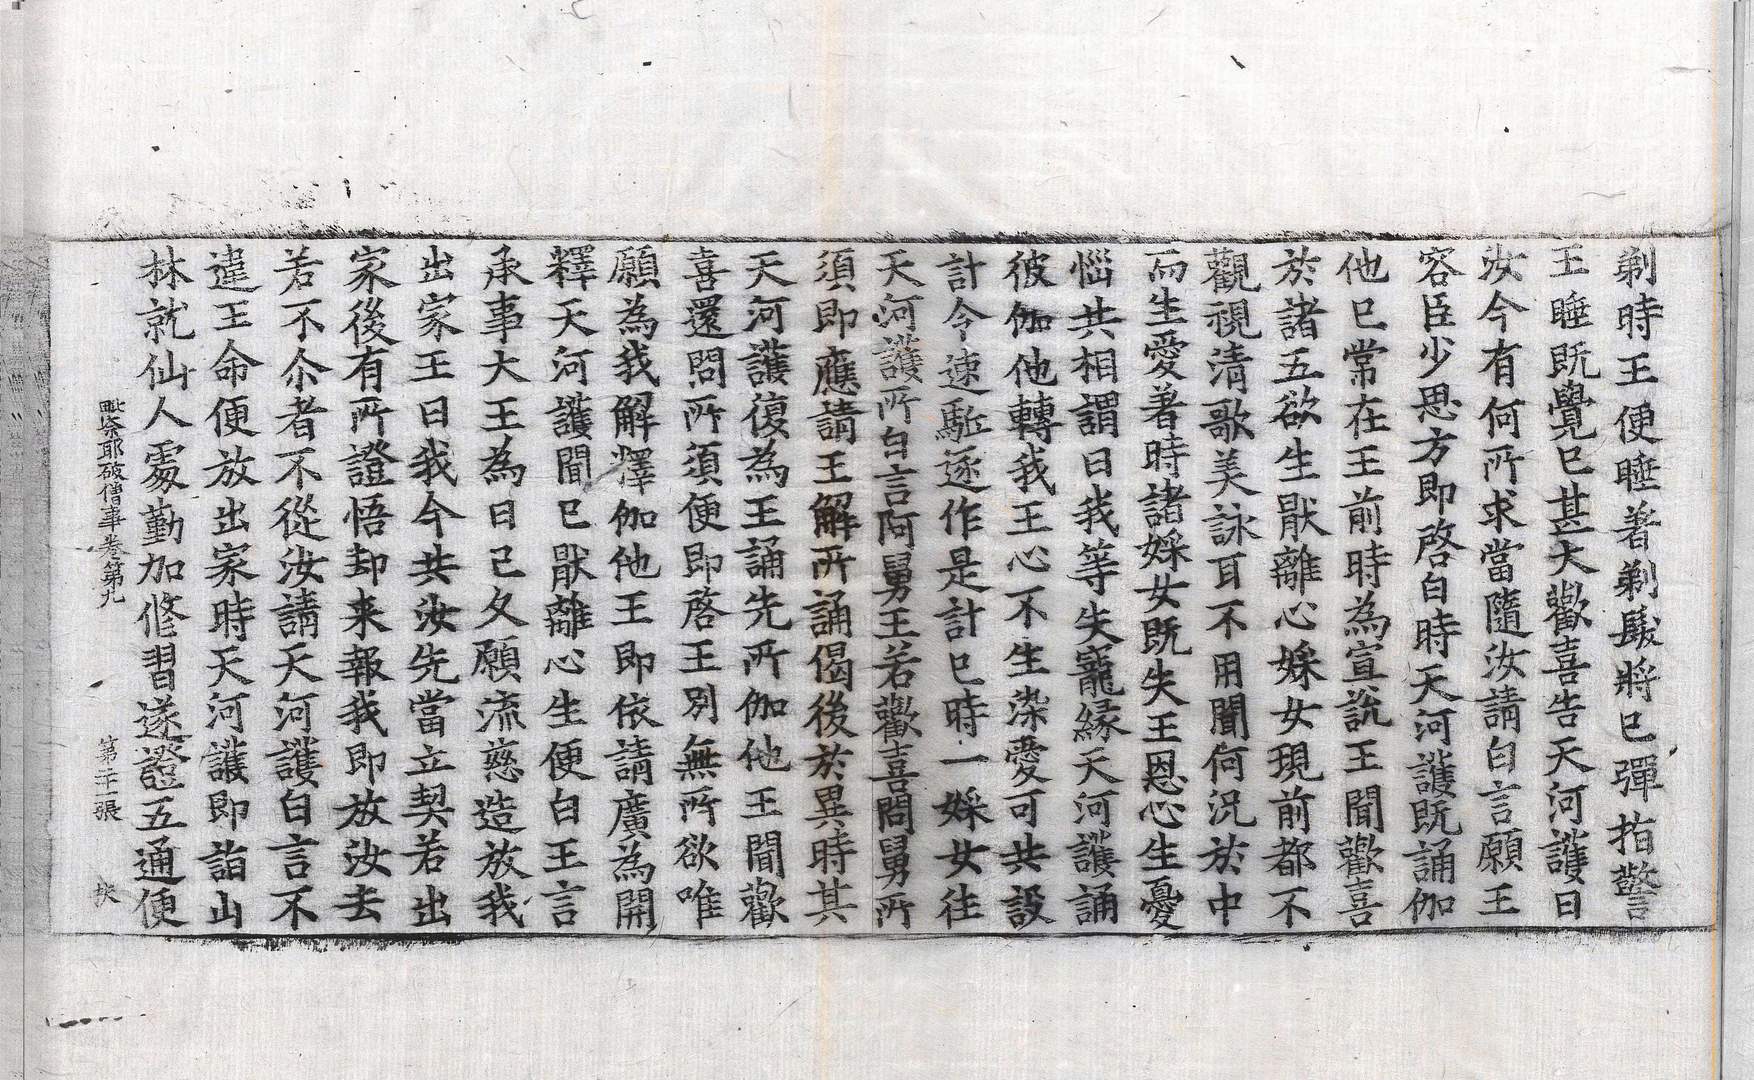 剃時王便睡著剃髮將已彈指警
王睡旣覺已甚大歡喜告天河護曰
汝今有何所求當隨汝請白言願王
容臣少思方即啓白時天河護旣誦伽
他已常在王前時為宣說王聞歡喜
於諸五欲生厭離心婇女現前都不
觀視清歌美詠耳不用聞何況於中
而生愛著時諸婇女旣失王恩心生憂
惱共相謂曰我等失寵緣天河護誦
彼伽他轉我王心不生染愛可共設
計令速駈逐作是計已時一婇女往
天河護所白言阿舅王若歡喜問舅所
須即應請王解所誦偈後於異時其
天河護復為王誦先所伽他王聞歡
喜還問所須便即啓王別無所欲唯
願為我解釋伽他王即依請廣為開
釋天河護聞已猒離心生便白王言
承事大王為日已久願流慈造放我
出家王曰我今共汝先當立契若出
家後有所證悟却来報我即放汝去
若不尒者不從汝請天河護白言不
違王命便放出家時天河護即詣山
林就仙人處勤加修習遂證五通便
毗奈耶破僧事卷第九 第二十一張 挾